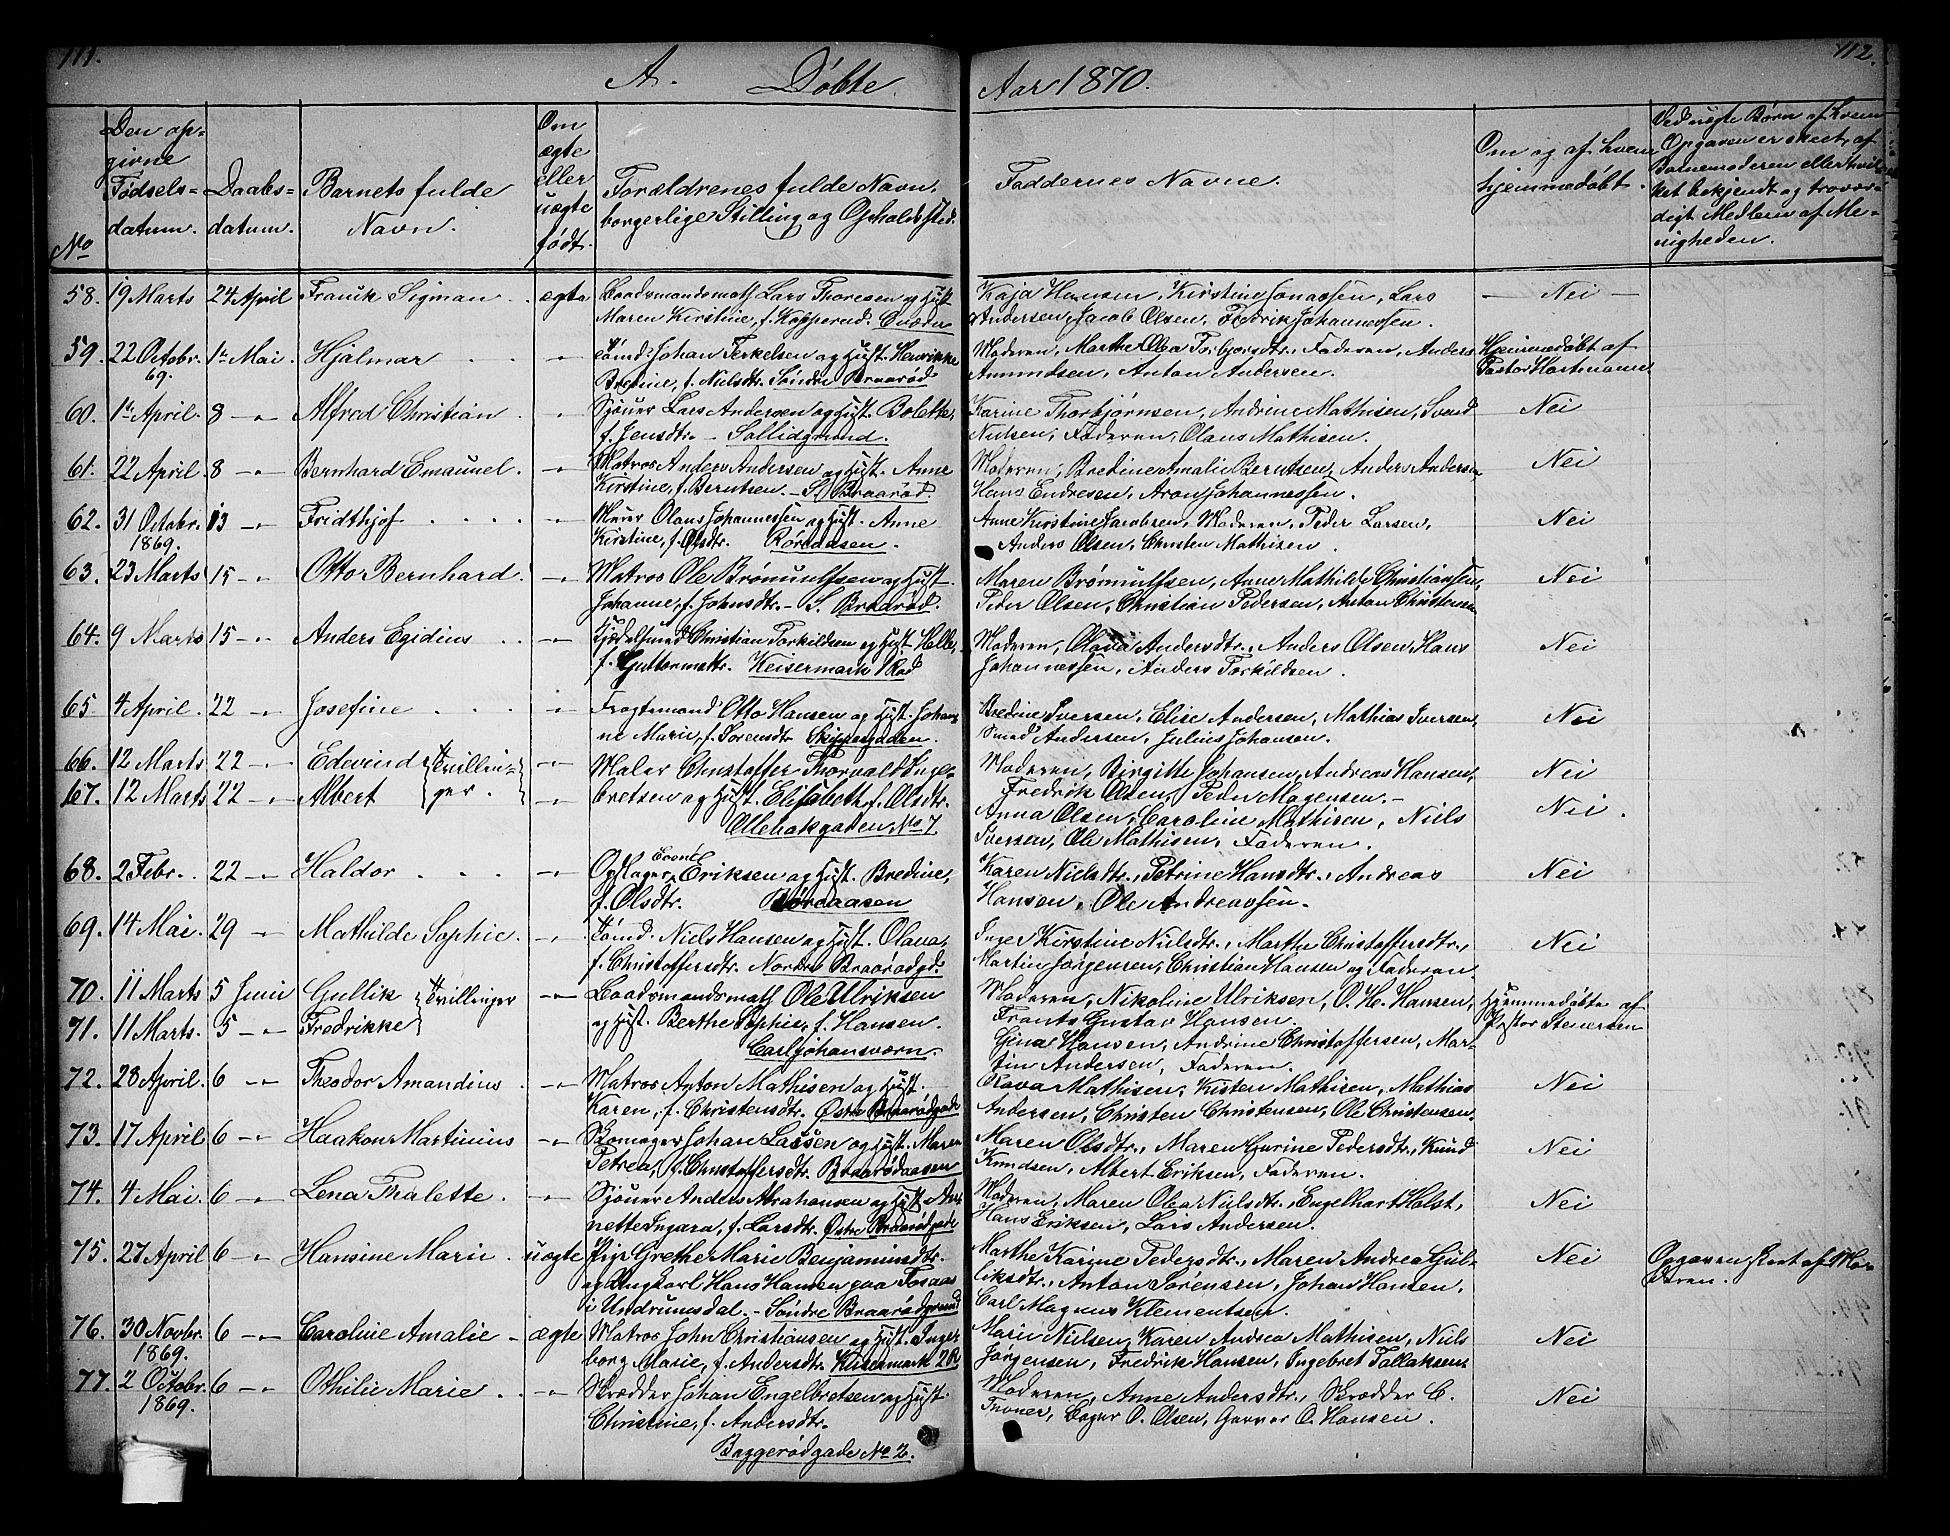 111.
112.
A. Döbte Aar 1870.
No
Den op=
givne
Fødsels=
datum.
Daabs=
datum.
Barnets fulde
Navn.
Om
ægte
eller
uægte
født.
Forældrenes fulde Navn,
borgerlige Stilling og Opholdssted.
Faddernes Navne.
Om og af hvem
hjemmedøbt.
Ved uægte Børn af hvem
Opgaven er skeet, af
Barnemoderen eller hvil
ket bekjendt og trovær=
digt Medlem af Me=
nigheden.
58. 19 Marts 24 April Franik Sigman ægte Baadsmandsmath Lars Thoresen og Hust.
Maren Kirstine, f. Kopperud.
Kaja Hansen, Kirstine Jonassen, Lars
Andersen, Jacob Olsen, Fredrik Johannessen. — Nei —
59. 22 Octobr. 69. 1ste Mai. Hjalmar -"- Tømd: Johan Terkelsen og Hust. Henrikke
Bredine, f. Nielsdtr. Søndre Braarød
Moderen, Marthe Olea Torbjørnsdtr., Faderen, Anders
Amundsen, Anton Andersen.
Hjemmedøbt af
Pastor Hartmann
60. 1ste April. 8 -"- Alfred Christian -"- Sjøuer Lars Andersen og Hust. Bolette,
f. Jensdtr. - Sollidgrund.
Karine Thorbjørnsen, Andrine Mathisen, Svend
Nielsen, Faderen, Olaus Mathisen. Nei
61. 22 April. 8 -"- Bernhard Emanuel. -"- Matros Anders Andersen og Hust. Anne
Kirstine, f. Berntsen. - S. Braarød.
Moderen, Bredine Amalie Berntsen, Anders Andersen
Hans Endresen, Aron Johannessen. Nei
62. 31 Octobr. 1869. 13 -"- Fridthjof -"- Muur Olaus Johannessen og Hust. Anne
Kirstine, f. Olsdtr. Røreaasen.
Anne Kirstine Jacobsen, Moderen, Peder Larsen,
Anders Olsen, Christen Mathisen. Nei
63. 23 Marts 15 -"- Otto Bernhard. -"- Matros Ole Brømulfsen og Hust.
Johanne, f. Johnsdtr. - S. Braarød.
Maren Brømulfsen, Anne Mathilde Christiansen,
Peder Olsen, Christian Pedersen, Anton Christensen Nei
64. 9 Marts 15 -"- Anders Egidius -"- Kjedelsmed Christian Torkildsen og Hust. Helle,
f. Guttormsdtr. Keisermark 1 Rad
Moderen, Olava Andersdtr., Anders Olsen, Hans
Johannessen, Anders Torkildsen. Nei
65 4 April. 22 -"- Josefine -"- Fragtemand Otto Hansen og Hust. Johan=
ne Marie, f. Sørensdtr. Skippergaden.
Bredine Iversen, Elise Andersen, Mathias Iversen,
Svend Andersen, Julius Johansen. Nei
66. 12 Marts 22 -"- Edevind } Tvillin= -"- Maler Christoffer Thorvald Inge=
67. 12 Marts 22 -"- Albert } ger. -"- bretsen og Hust. Elisabeth, f. Olsdtr.
Ollebaksgaden No 7
Moderen, Birgitte Johansen, Andreas Hansen,
Fredrik Olsen, Peder Magensen. - Nei
Anna Olsen, Caroline Mathisen, Niels
Iversen, Ole Mathisen, Faderen. Nei.
68. 2 Febr. 22 -"- Haldor -"- Opslager Evend Eriksen og Hust. Bredine,
f. Olsdtr. Røreaasen
Karen Nielsdtr., Petrine Hansdtr., Andreas
Hansen, Ole Andreassen. Nei
69. 14 Mai. 29 -"- Mathilde Sophie. -"- Tømd. Niels Hansen og Hust. Olava,
f. Christoffersdtr. Nordre Braarødgd.
Inger Kirstine Nielsdtr., Marthe Christoffersdtr.,
Martin Jørgensen, Christian Hansen og Faderen. Nei
70. 11 Marts 5 Juni Gullik } Tvillinger -"- Baadsmandsmath Ole Ulriksen
71. 11 Marts. 5 -"- Fredrikke } og Hust. Berthe Sophie, f. Hansen.
Carljohansværn.
Moderen, Nikoline Ulriksen, O. H. Hansen,
Frants Gustav Hansen.
Gina Hansen, Andrine Christoffersen, Mar=
tin Andersen, Faderen.
Hjemmedøbte af
Pastor Stenersen
72. 28 April. 6 -"- Theodor Amandius. -"- Matros Anton Mathisen og Hust.
Karen, f. Christensdtr. Østre Braarødgade
Olava Mathisen, Kisten Mathisen, Mathias
Andersen, Christen Christensen, Ole Christensen. Nei
73. 17 April 6 -"- Haakon Martinius -"- Skomager Johan Larsen og Hust. Maren
Petrea, f. Christoffersdtr. Braarødaasen
Maren Olsdtr., Maren Gurine Pedersdtr., Knud
Knudsen, Albert Eriksen, Faderen. Nei
74. 4 Mai. 6 -"- Lena Thalette. -"- Sjøuer Anders Abrahamsen og Hust. An=
nette Ingara, f. Larsdtr. Østre Braarødgade
Moderen, Maren Olea Nielsdtr., Engelhart Holst,
Hans Eriksen, Lars Andersen. Nei
75. 27 April 6 -"- Hansine Marie uægte Pige Grethe Marie Benjaminsdtr.
og Ungkarl Hans Hansen paa Fosaas
i Undrumsdal. - Søndre Braarødgrund
Marthe Karine Pedersdtr., Maren Andrea Gul=
liksdtr., Anton Sørensen, Johan Hansen,
Carl Magnus Klementsen. Nei
Opgaven skeet af Mo=
deren.
76. 30 Novbr. 1869. 6 -"- Caroline Amalie ægte Matros John Christiansen og Hust. Inge=
borg Marie, f. Andersdtr. Keisermark 2 R
Marie Nielsen, Karen Andrea Mathisen, Niels
Jørgensen, Fredrik Hansen, Ingebret Tallaksen. Nei
77. 2 Octobr. 1869. 6 -"- Othilie Marie -"- Skrædder Johan Engelbretsen og Hust.
Christine, f. Andersdtr.
Baggerødgade No 2.
Moderen, Anne Andersdtr., Skrædder C.
Tvoner, Bager O. Olsen, Garver O. Hansen. Nei